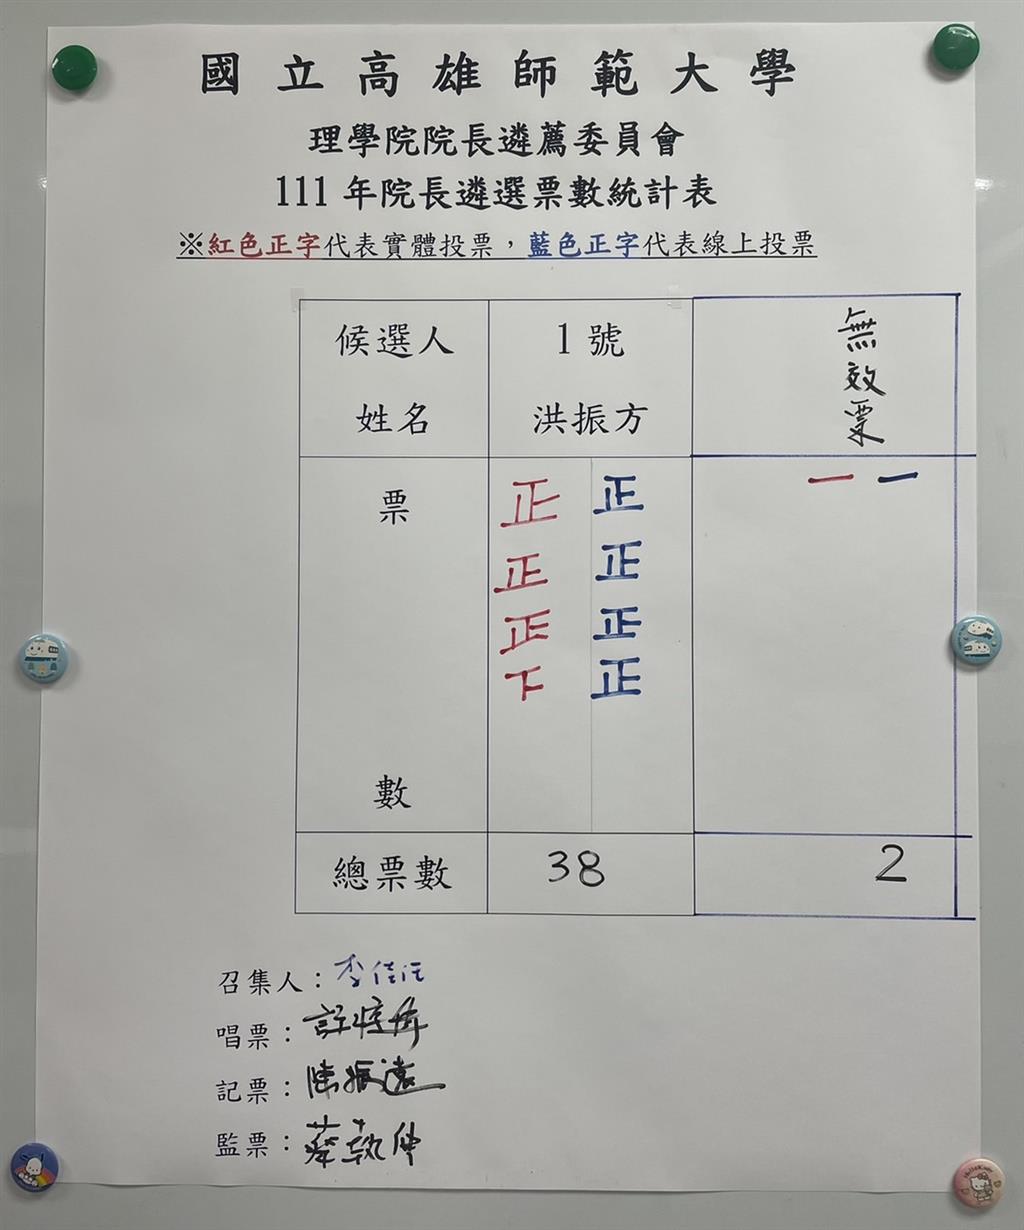 國立高雄師範大學
理學院院長遴薦委員會
111年院長遴選票數統計表
※紅色正字代表實體投票，藍色正字代表線上投票
候選人姓名
1號
洪振方
無效票
票數
正 正
正 正
正 正
下 正
一 一
總票數 38 2
召集人：李佳任
唱票：
記票：陳振遠
監票：蔡執仲